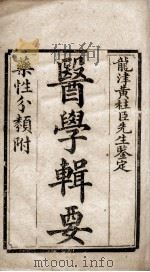 龍津黃柱臣先生鑒定
醫學輯要
藥性分類附